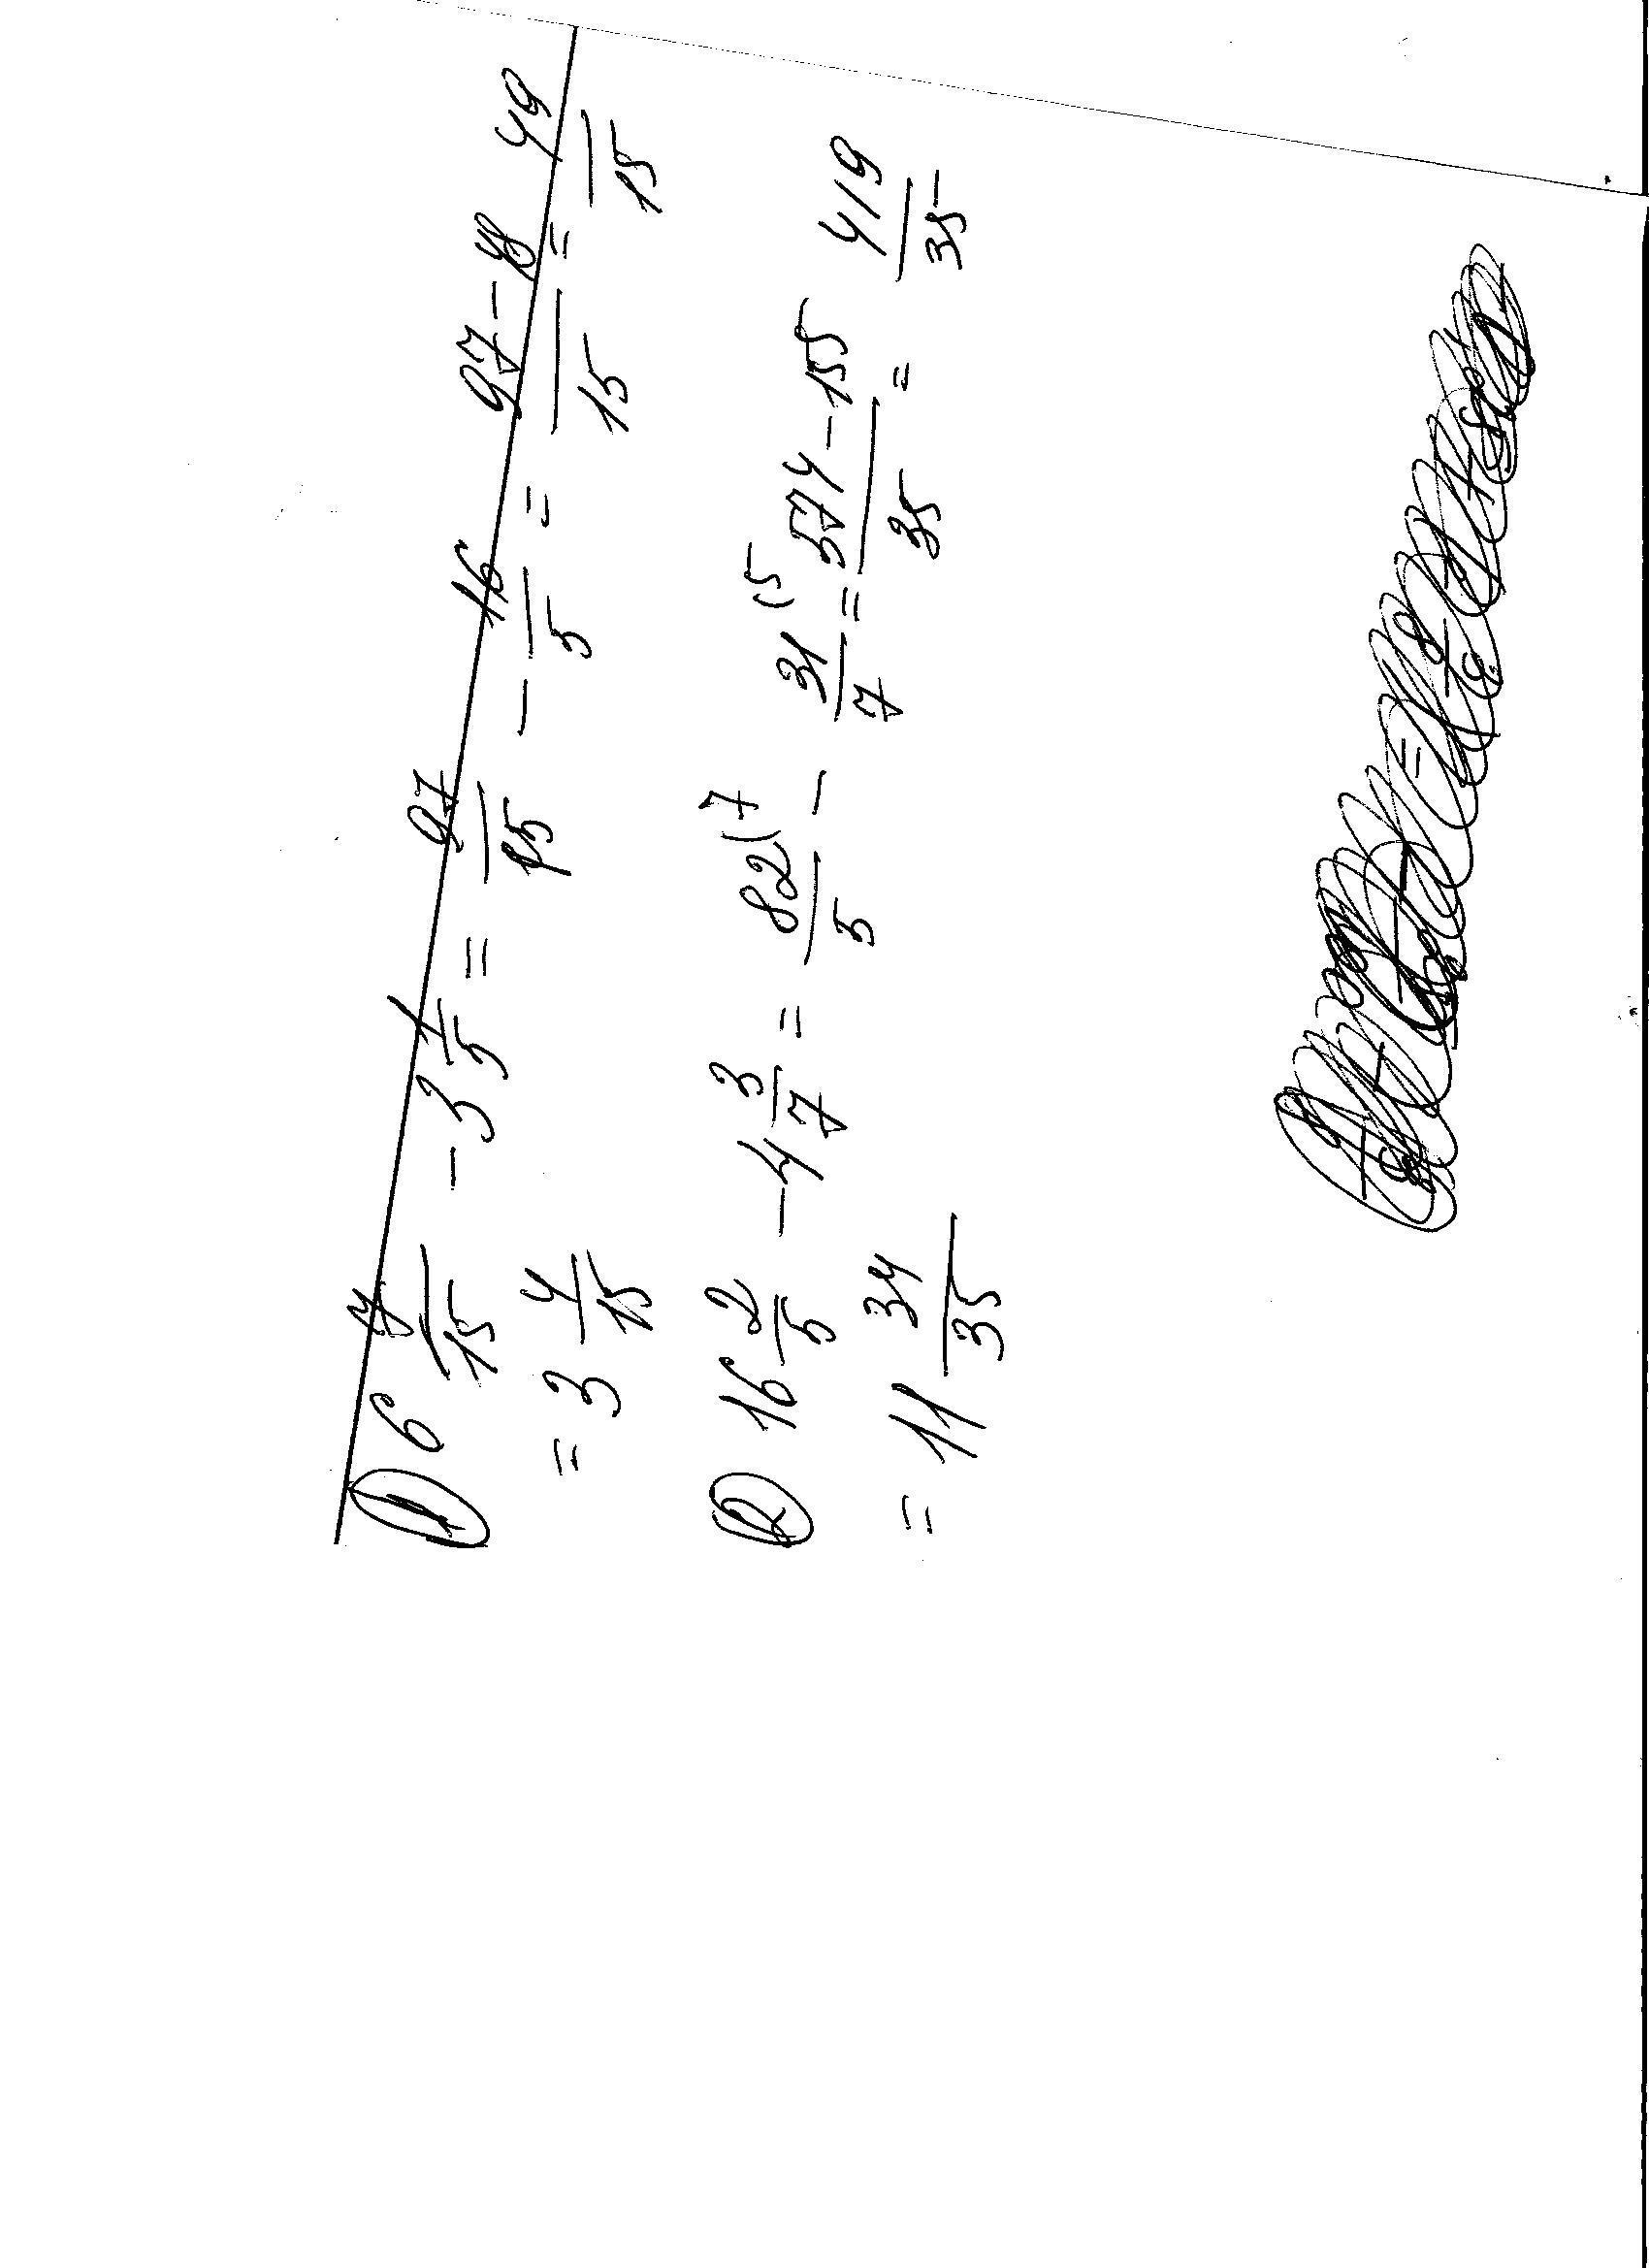 1 6 7/15 - 3 1/5 = 97/15 - 16/5 = 97-48/15 = 49/15
= 3 4/15
2 16 2/5 - 4 3/7 = 82(7/5 - 31(5/7 = 574-155/35 = 419/35
= 11 34/35